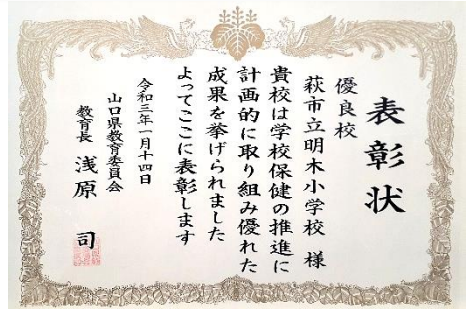 表彰状
優良校
萩市立明木小学校 様
貴校は学校保健の推進に
計画的に取り組み優れた
成果を挙げられました
よってここに表彰します
令和三年一月十四日
山口県教育委員会
教育長 浅原 司